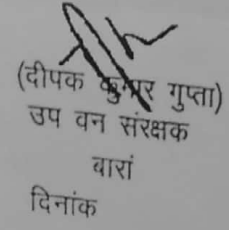 (दीपक कुमार गुप्ता)
उप वन संरक्षक
बारां
दिनांक